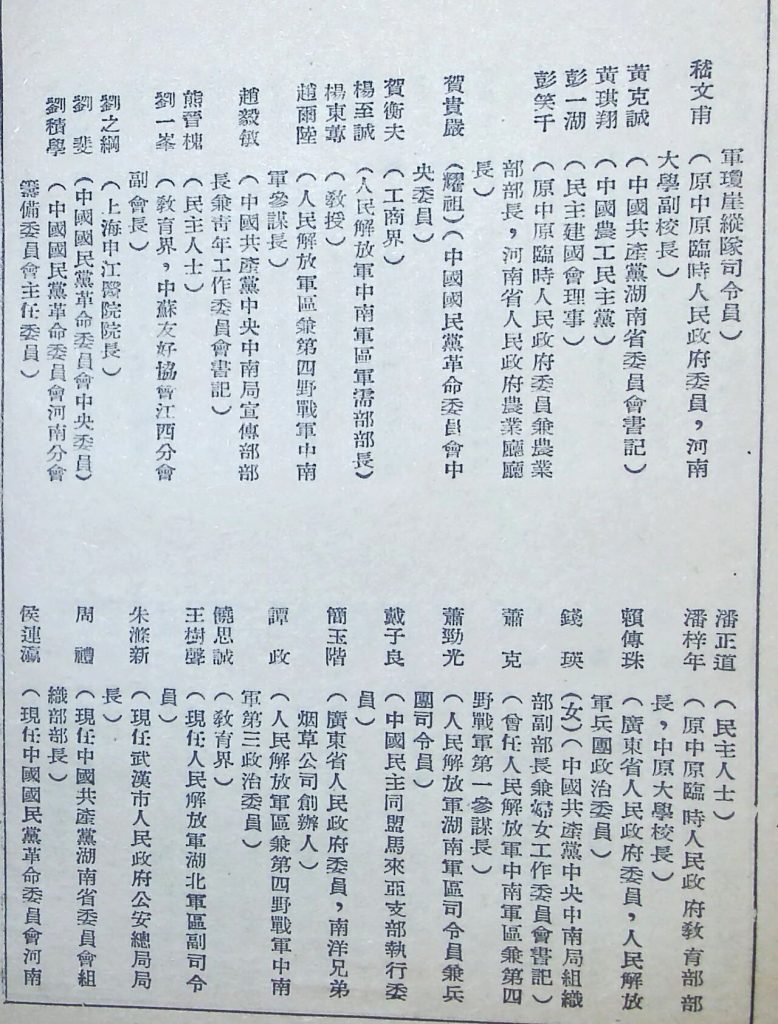 軍瓊崖縱隊司令員）
嵇文甫（原中原臨時人民政府委員，河南
大學副校長）
黃克誠（中國共產黨湖南省委員會書記）
黃琪翔（中國農工民主黨）
彭一湖（民主建國會理事）
彭笑千（原中原臨時人民政府委員兼農業
部部長，河南省人民政府農業廳廳
長）
賀貴嚴（耀祖）（中國國民黨革命委員會中
央委員）
賀衡夫（工商界）
楊至誠（人民解放軍中南軍區軍需部部長）
楊東蒓（教授）
趙爾陸（人民解放軍區兼第四野戰軍中南
軍參謀長）
趙毅敏（中國共產黨中央中南局宣傳部部
長兼青年工作委員會書記）
熊晉槐（民主人士）
劉一峯（敎育界，中蘇友好協會江西分會
副會長）
劉之綱（上海中江醫院院長）
劉　斐（中國國民黨革命委員會中央委員）
劉積學（中國國民黨革命委員會河南分會
籌備委員會主任委員）
潘正道（民主人士）
潘梓年（原中原臨時人民政府敎育部部
長，中原大學校長）
賴傳珠（廣東省人民政府委員，人民解放
軍兵團政治委員）
錢　瑛（女）（中國共產黨中央中南局組織
部副部長兼婦女工作委員會書記）
蕭　克（曾任人民解放軍中南軍區兼第四
野戰軍第一參謀長）
蕭勁光（人民解放軍湖南軍區司令員兼兵
團司令員）
戴子良（中國民主同盟馬來亞支部執行委
員）
簡玉階（廣東省人民政府委員，南洋兄弟
烟草公司創辦人）
譚　政（人民解放軍區兼第四野戰軍中南
軍第三政治委員）
饒思誠（敎育界）
王樹聲（現任人民解放軍湖北軍區副司令
員）
朱滌新（現任武漢市人民政府公安總局局
長）
周　禮（現任中國共產黨湖南省委員會組
織部部長）
侯連瀛（現任中國國民黨革命委員會河南